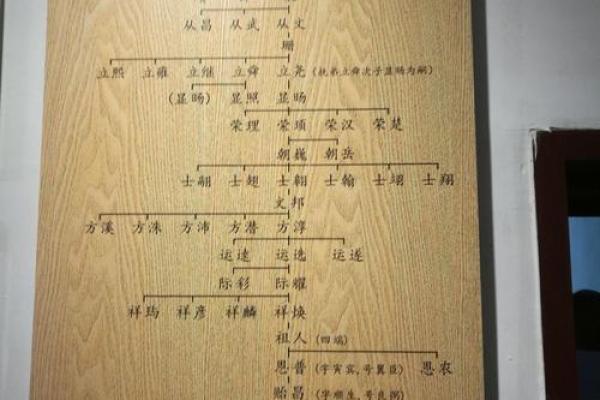 从昌 从武 从文
珊
立熙 立雍 立继 立舜 立尧(抚弟立舜次子显旸为嗣)
(显旸) 显照 显旸
荣理 荣顼 荣汉 荣楚
朝巍 朝岳
士翮 士翘 士翱 士翰 士翊 士翔
文邦
方溪 方洙 方沛 方潜 方淳
运逵 运选 运遂
际彩 际耀
祥玙 祥彦 祥麟 祥焕
祖人(四端)
恩普(字寅宾,号翼臣) 恩农
贻昌(字顺生,号良弼)